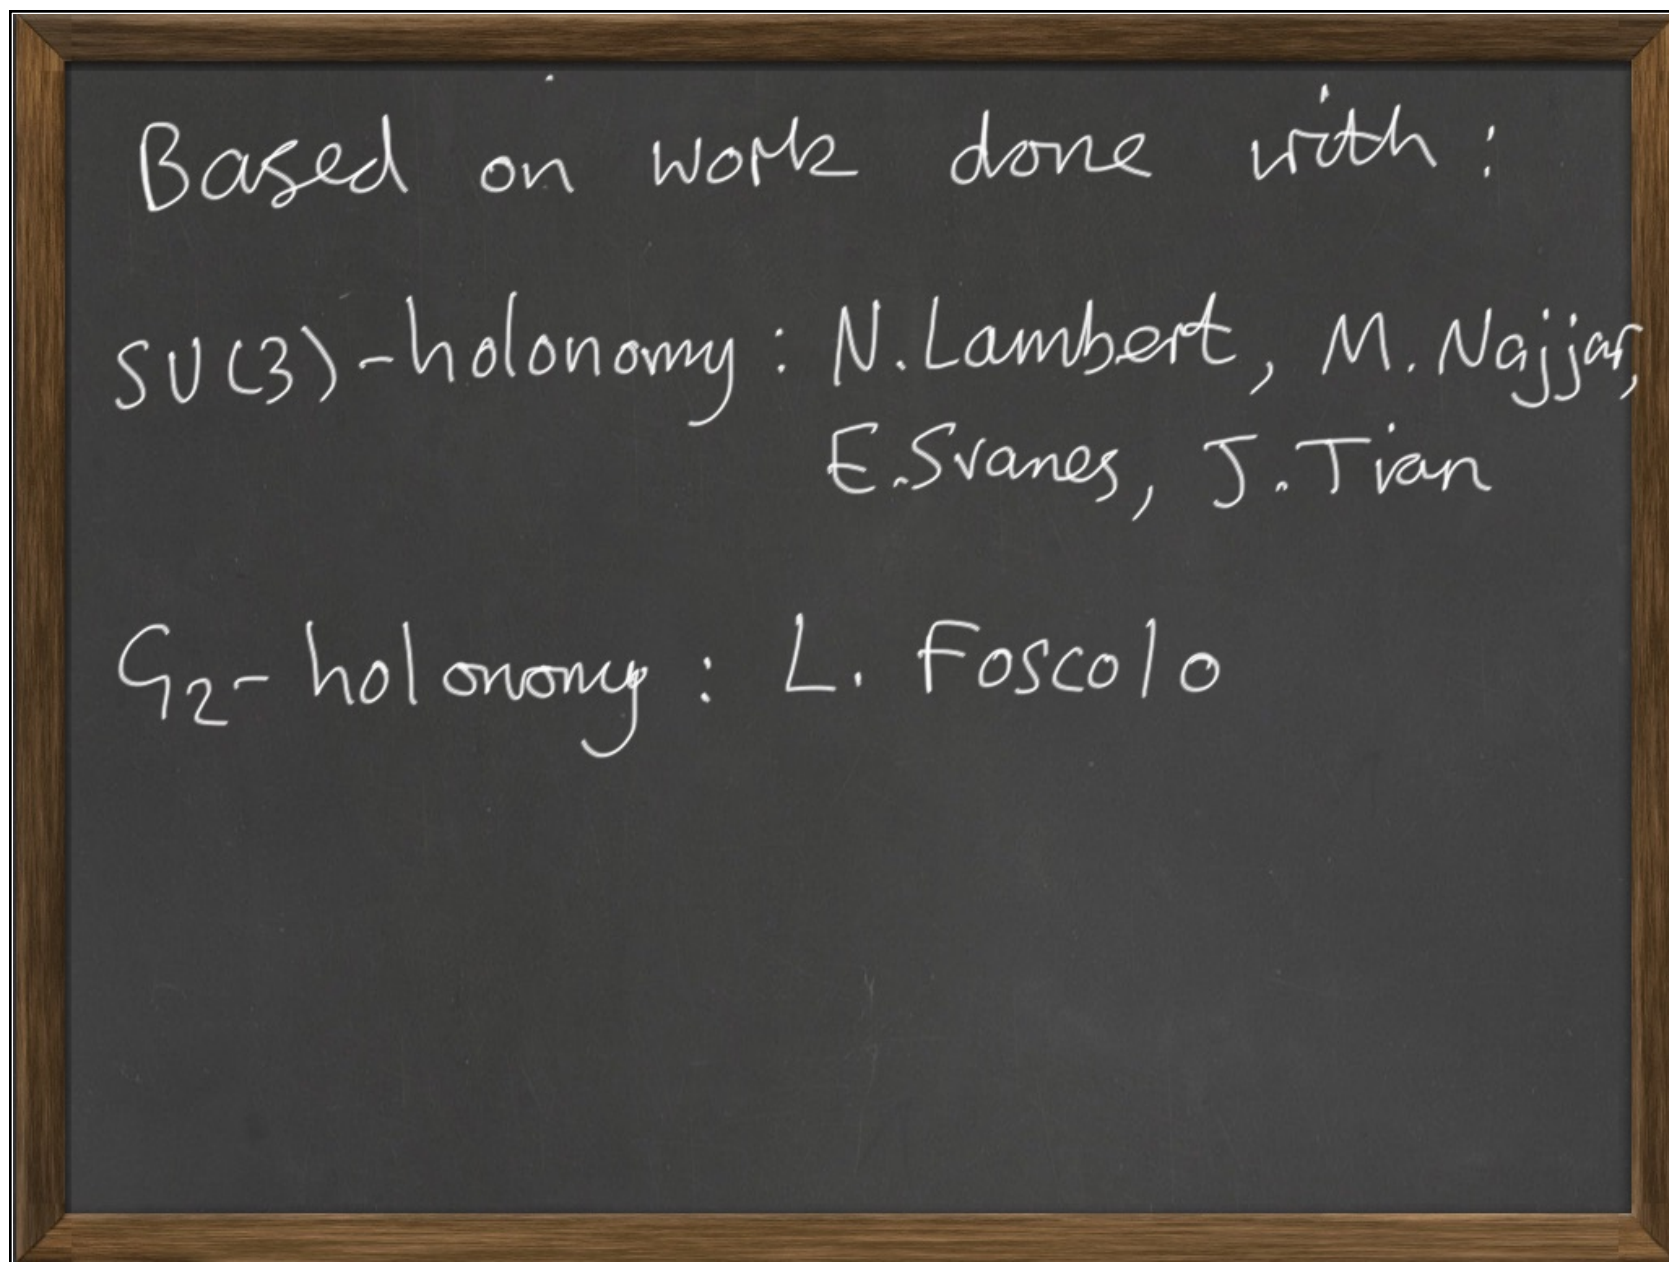 Based on work done with:
SU(3)-holonomy: N. Lambert, M. Najjar,
E. Svanes, J. Tian
G₂-holonomy: L. Foscolo